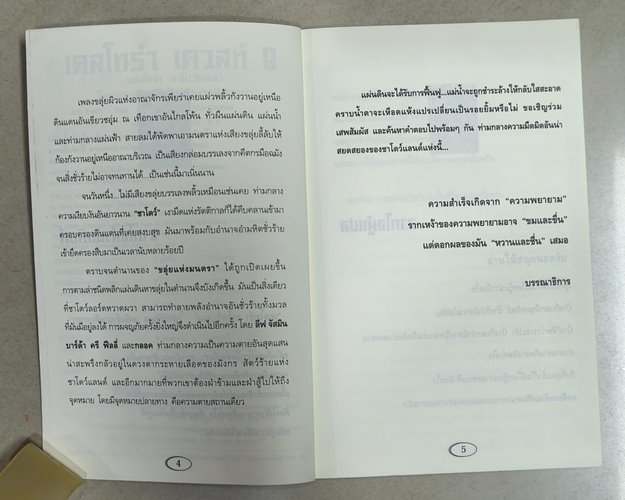 เพลงขลุ่ยผิวแห่งอาณาจักรเพียร่าเคยแผ่วพลิ้วกังวานอยู่เหนือ
ดินแดนอันเขียวชอุ่ม ณ เทือกเขาอันไกลโพ้น ทั่วผืนแผ่นดิน แผ่นน้ำ
และท่ามกลางแผ่นฟ้า สายลมได้พัดพาเอามนตราแห่งเสียงขลุ่ยลี้ลับให้
ก้องกังวานอยู่เหนืออาณาบริเวณ เป็นเสียงกล่อมบรรเลงจากคีตกรมือฉมัง
จนสิ่งชั่วร้ายไม่อาจทนทานได้...เป็นเช่นนี้มาเนิ่นนาน
จนวันหนึ่ง...ไม่มีเสียงขลุ่ยบรรเลงพลิ้วเหมือนเช่นเคย ท่ามกลาง
ความเงียบงันอันยาวนาน "ชาโดว์" เงามืดแห่งรัตติกาลก็ได้คืบคลานเข้ามา
ครอบครองดินแดนที่เคยสงบสุข มันมาพร้อมกับอำนาจอำมหิตชั่วร้าย
เข้ายึดครองสืบมาเป็นเวลานับหลายร้อยปี
ตราบจนตำนานของ "ขลุ่ยแห่งมนตรา" ได้ถูกเปิดเผยขึ้น
การตามล่าชนิดพลิกแผ่นดินหาขลุ่ยในตำนานจึงบังเกิดขึ้น มันเป็นสิ่งเดียว
ที่ชาโดว์ลอร์ดหวาดผวา สามารถทำลายพลังอำนาจอันชั่วร้ายทั้งมวล
ที่มันมีอยู่ลงได้ การผจญภัยครั้งยิ่งใหญ่จึงดำเนินไปอีกครั้ง โดย ลีฟ จัสมิน
บาร์ด้า ครี ฟิลลี่ และกลอค ท่ามกลางความเป็นความตายอันสุดแสน
น่าสะพรึงกลัวอยู่ในดวงตากระหายเลือดของมังกร สัตว์ร้ายแห่ง
ชาโดว์แลนด์ และอีกมากมายที่พวกเขาต้องฝ่าข้ามและฝ่าสู้ไปให้ถึง
จุดหมาย โดยมีจุดหมายปลายทาง คือความตายสถานเดียว
4
แผ่นดินจะได้รับการฟื้นฟู...แม่น้ำจะถูกชำระล้างให้กลับใสสะอาด
คราบน้ำตาจะเหือดแห้งแปรเปลี่ยนเป็นรอยยิ้มหรือไม่ ขอเชิญร่วม
เสพสัมผัส และค้นหาคำตอบไปพร้อมๆ กัน ท่ามกลางความมืดมิดอันน่า
สยดสยองของชาโดว์แลนด์แห่งนี้...
ความสำเร็จเกิดจาก "ความพยายาม"
รากเหง้าของความพยายามอาจ "ขมและขื่น"
แต่ดอกผลของมัน "หวานและชื่น" เสมอ
บรรณาธิการ
5